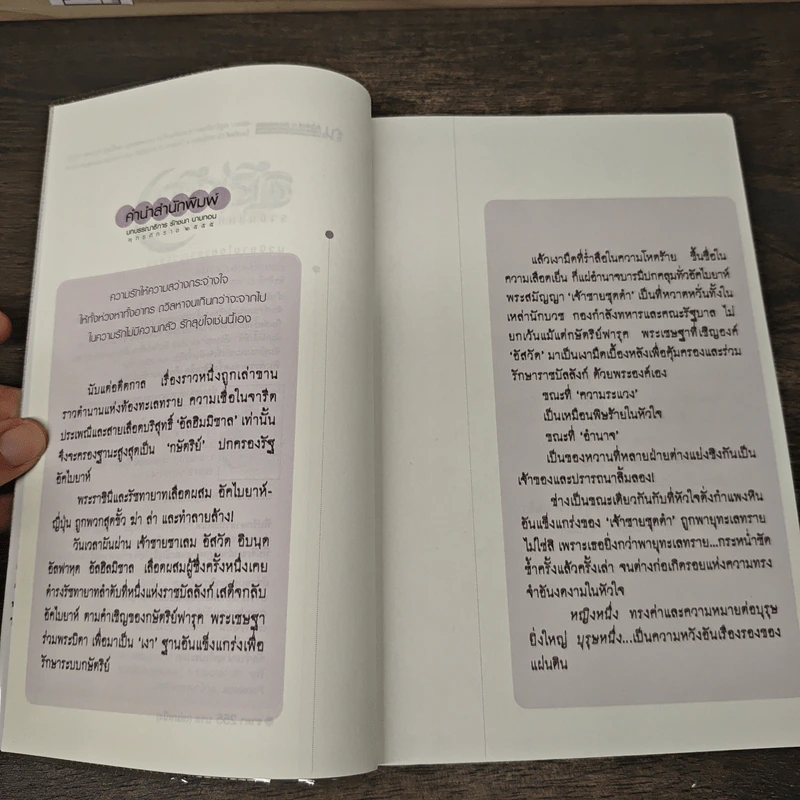 คำนำสำนักพิมพ์
บทบรรณาธิการ รักชนก นามทอน
พุทธศักราช ๒๕๕๕
ความรักให้ความสว่างกระจ่างใจ
ให้ทั้งห่วงหาทั้งอาทร ถวิลหาจนเกินกว่าจะจากไป
ในความรักไม่มีความกลัว รักสุขใจเช่นนี้เอง
นับแต่อดีตกาล เรื่องราวหนึ่งถูกเล่าขาน
ราวตำนานแห่งท้องทะเลทราย ความเชื่อในจารีต
ประเพณีและสายเลือดบริสุทธิ์ ‘อัลฮิมมิซาล’ เท่านั้น
จึงจะครองฐานะสูงสุดเป็น ‘กษัตริย์’ ปกครองรัฐ
อัคไบยาห์
พระราชินีและรัชทายาทเลือดผสม อัคไบยาห์-
ญี่ปุ่น ถูกพวกสุดขั้ว ฆ่า ล่า และทำลายล้าง!
วันเวลาผันผ่าน เจ้าชายซาเลม อัสวัด อิบนุด
อัลฟาหุด อัลฮิลมิซาล เลือดผสมผู้ซึ่งครั้งหนึ่งเคย
ดำรงรัชทายาทลำดับที่หนึ่งแห่งราชบัลลังก์ เสด็จกลับ
อัคไบยาห์ ตามคำเชิญของกษัตริย์ฟารุค พระเชษฐา
ร่วมพระบิดา เพื่อมาเป็น ‘เงา’ ฐานอันแข็งแกร่งเพื่อ
รักษาระบบกษัตริย์
แล้วเงามืดที่ร่ำลือในความโหดร้าย ขึ้นชื่อใน
ความเลือดเย็น ก็แผ่อำนาจบารมีปกคลุมทั่วอัคไบยาห์
พระสมัญญา ‘เจ้าชายชุดดำ’ เป็นที่หวาดหวั่นทั้งใน
เหล่านักบวช กองกำลังทหารและคณะรัฐบาล ไม่
ยกเว้นแม้แต่กษัตริย์ฟารุค พระเชษฐาที่เชิญองค์
‘อัสวัด’ มาเป็นเงามืดเบื้องหลังเพื่อคุ้มครองและร่วม
รักษาราชบัลลังก์ ด้วยพระองค์เอง
ขณะที่ ‘ความระแวง’
เป็นเหมือนพิษร้ายในหัวใจ
ขณะที่ ‘อำนาจ’
เป็นของหวานที่หลายฝ่ายต่างแย่งชิงกันเป็น
เจ้าของและปรารถนาลิ้มลอง!
ช่างเป็นขณะเดียวกันกับที่หัวใจดั่งกำแพงหิน
อันแข็งแกร่งของ ‘เจ้าชายชุดดำ’ ถูกพายุทะเลทราย
ไม่ใช่สิ เพราะเธอยิ่งกว่าพายุทะเลทราย...กระหน่ำซัด
ซ้ำครั้งแล้วครั้งเล่า จนต่างก่อเกิดรอยแห่งความทรง
จำอันงดงามในหัวใจ
หญิงหนึ่ง ทรงค่าและความหมายต่อบุรุษ
ยิ่งใหญ่ บุรุษหนึ่ง...เป็นความหวังอันเรืองรองของ
แผ่นดิน